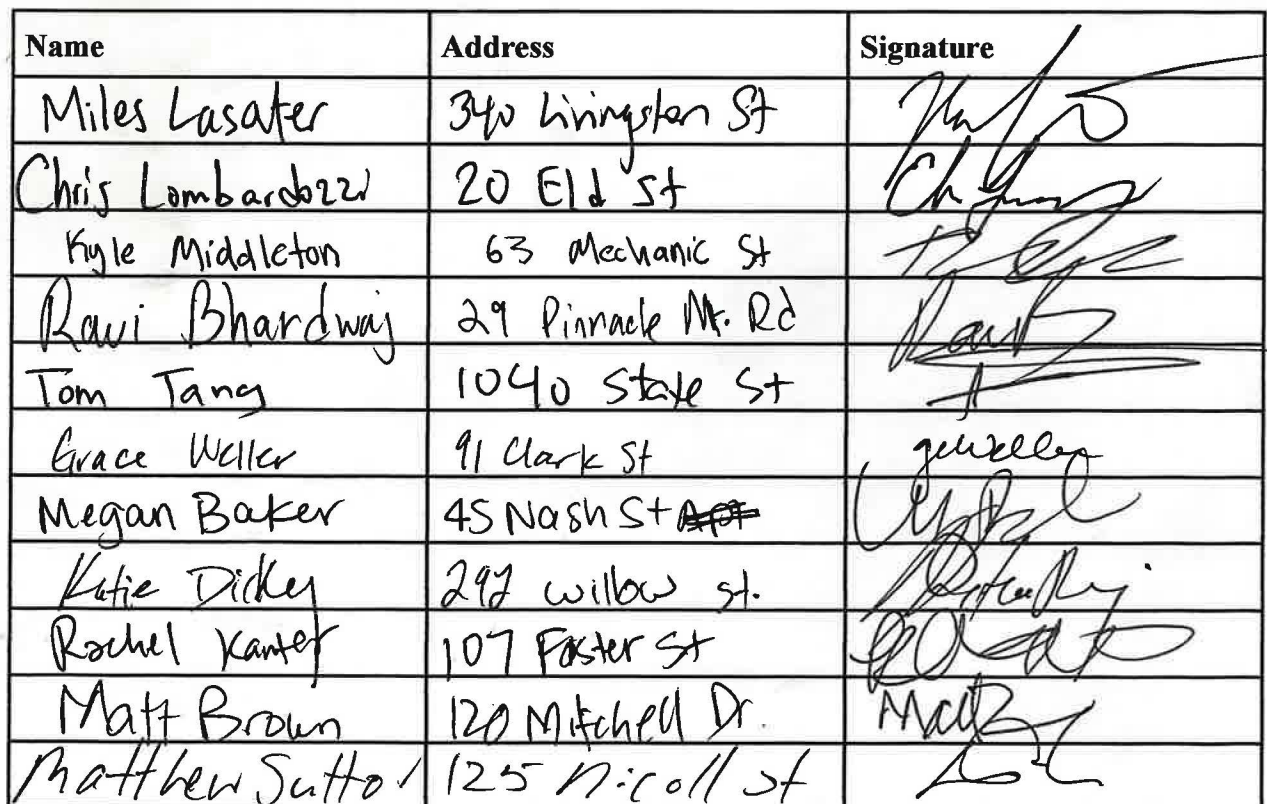 Name Address Signature
Miles Lasater 340 Livingston St
Chris Lombardozzi 20 Eld St
Kyle Middleton 63 Mechanic St
Ravi Bhardwaj 29 Pinnacle Mt. Rd
Tom Tang 1040 State St
Grace Weller 91 Clark St geweller
Megan Baker 45 Nash St Apt
Katie Dickey 292 willow st.
Rachel Kanter 107 Foster St
Matt Brown 120 Mitchell Dr.
Matthew Sutton 125 Nicoll st